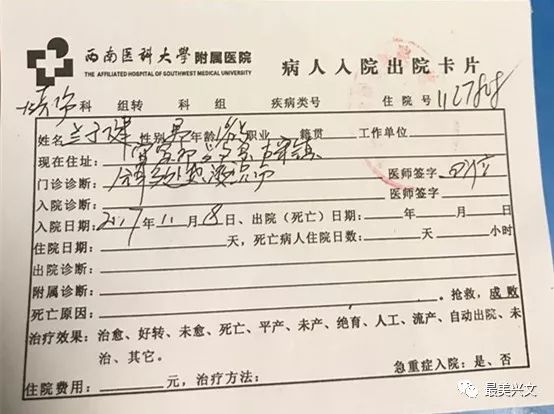 西南医科大学附属医院
THE AFFILIATED HOSPITAL OF SOUTHWEST MEDICAL UNIVERSITY
病人入院出院卡片
科 组转 科 组 疾病类号 住院号 1127808
姓名 兰子 性别 男 年龄 职业 籍贯 工作单位
现在住址： 宜宾市兴文县
门诊诊断： 医师签字
入院诊断： 医师签字
入院日期：2017年11月8日、出院（死亡）日期： 年 月 日
住院日期： 天，死亡病人住院日数： 天 小时
出院诊断：
附属诊断：
死亡原因： 。抢救，成败
治疗效果：治愈、好转、未愈、死亡、平产、未产、绝育、人工、流产、自动出院、未
治、其它。
急重症入院：是、否
住院费用： 元，治疗方法：
最美兴文